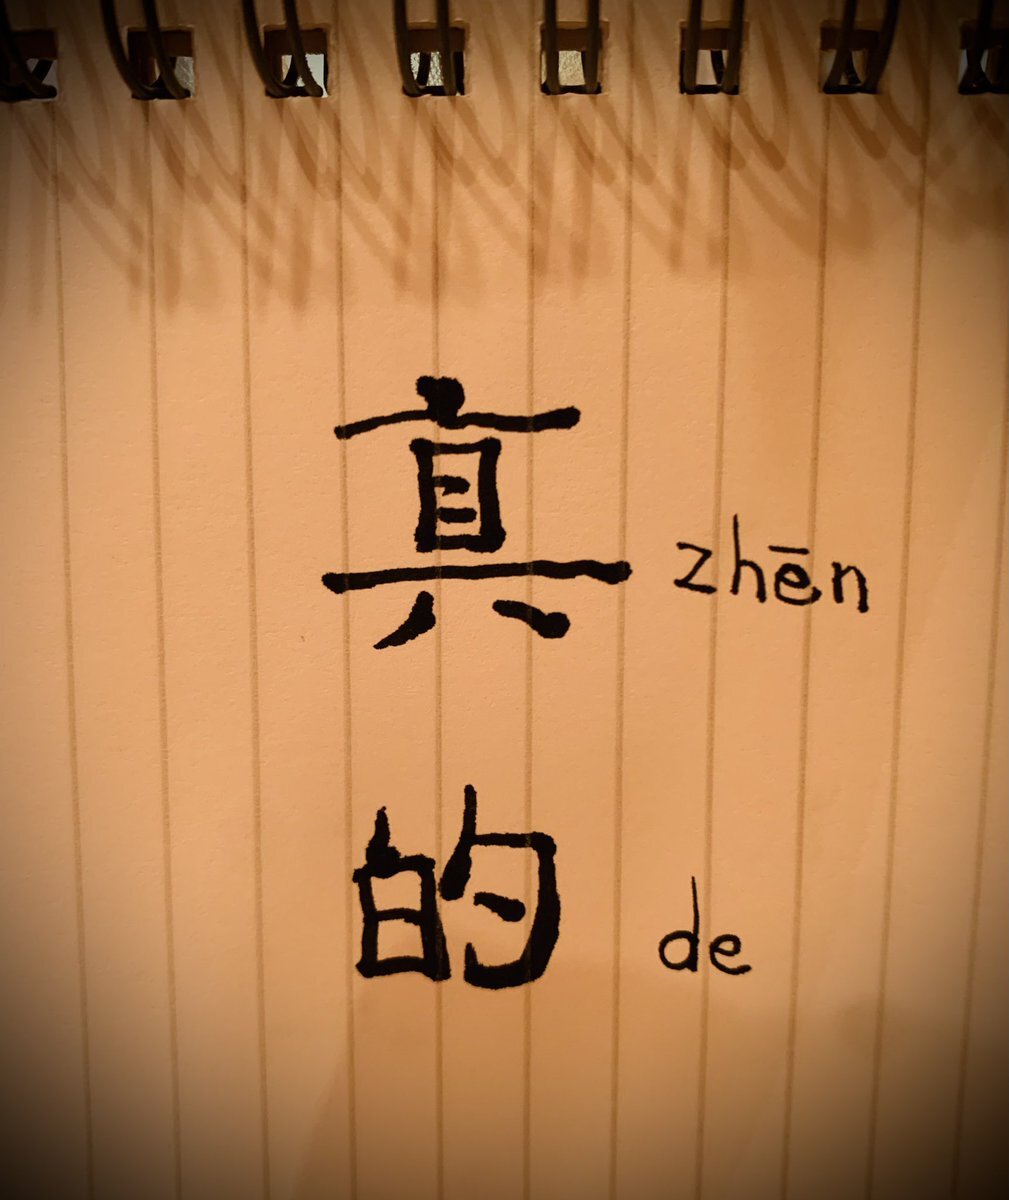 真 zhēn
的 de